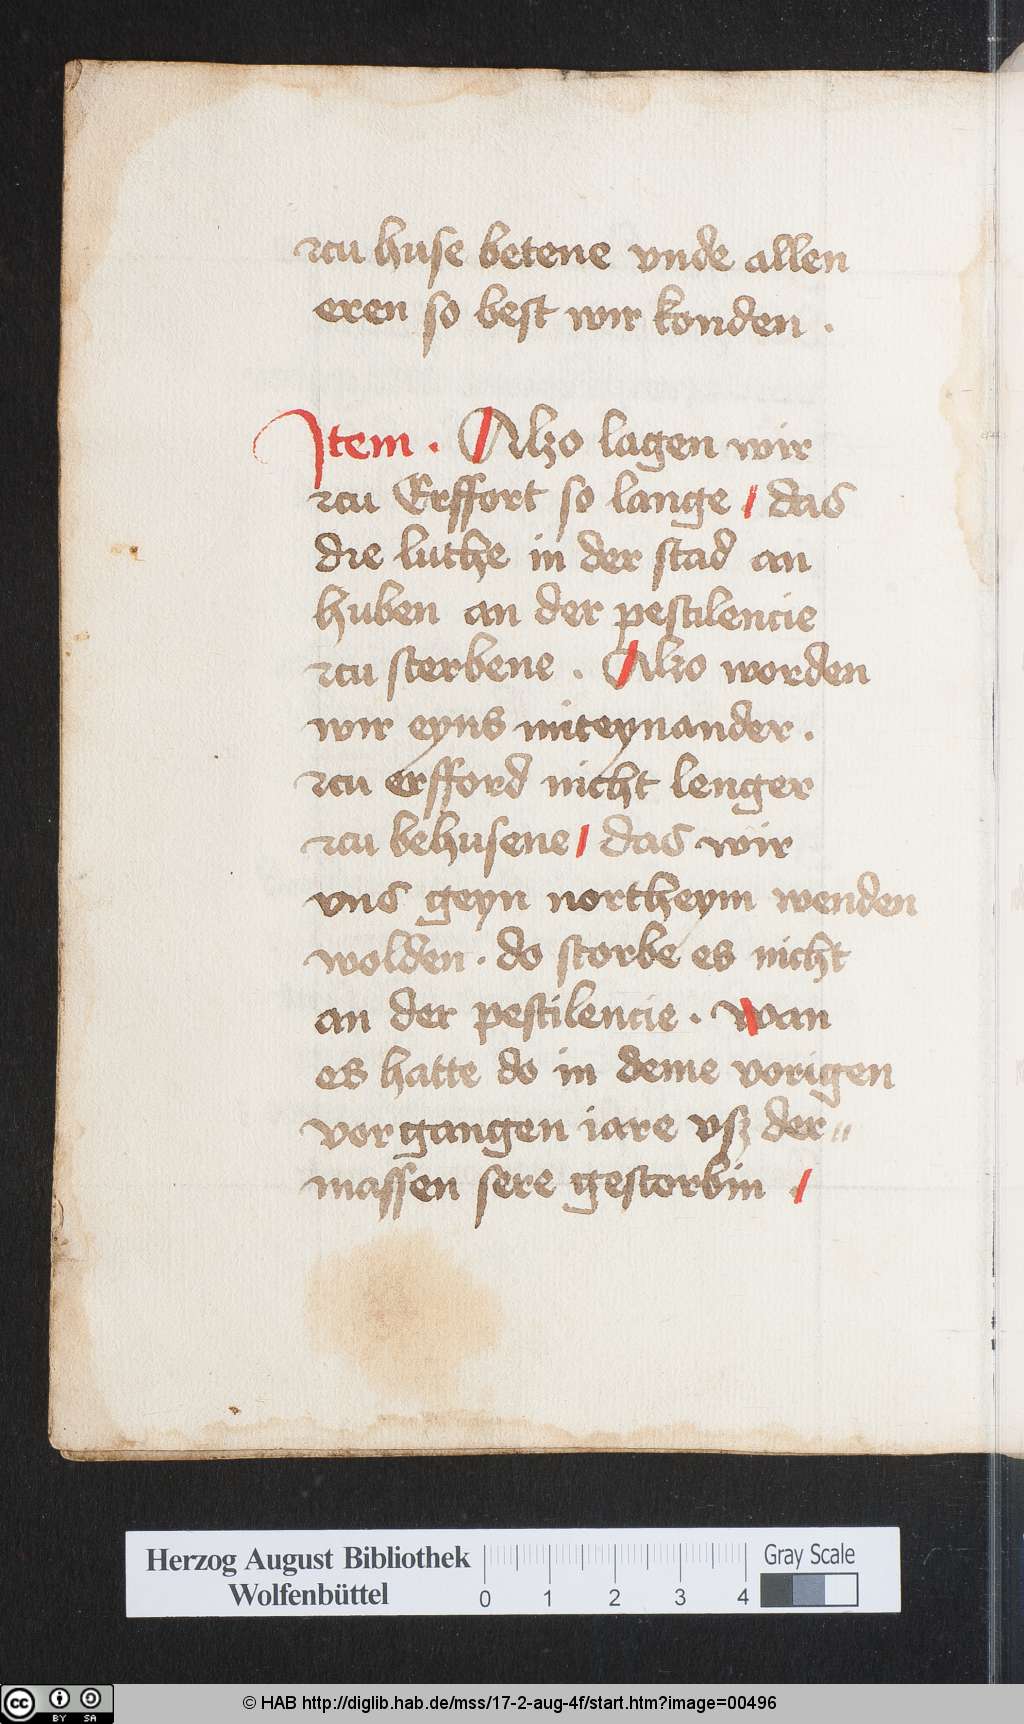 zcu huse betene vnde allen
eren so best wir konden .
Item . Alzo lagen wir
zcu Erffort so lange / das
die luthe in der stad an
huben an der pestilencie
zcu sterbene . Alzo worden
wir eyns miteynander .
zcu erfford nicht lenger
zcu behusene / das wir
vns geyn northeym wenden
wolden . do storbe es nicht
an der pestilencie . wan
es hatte do in deme vorigen
vorgangen iare vsz der„
massen sere gestorbin /
Herzog August Bibliothek
Wolfenbüttel
0 1 2 3 4
Gray Scale
cc BY SA
© HAB http://diglib.hab.de/mss/17-2-aug-4f/start.htm?image=00496